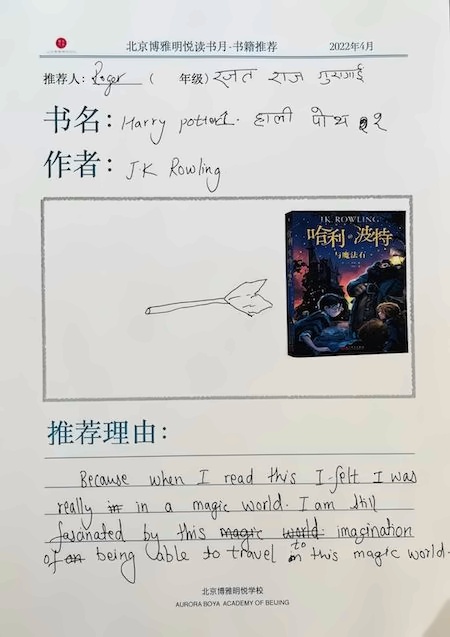 北京博雅明悦读书月·书籍推荐 2022年4月
推荐人: Roger ( 年级) रजत राज गुरागाई
书名: Harry potter1. हाली पोथ १
作者: J.K Rowling
J.K.ROWLING
哈利·波特
与魔法石
推荐理由:
Because when I read this I felt I was
really in in a magic world. I am still
fasanated by this magic world. imagination
of an being able to travel to this magic world.
北京博雅明悦学校
AURORA BOYA ACADEMY OF BEIJING